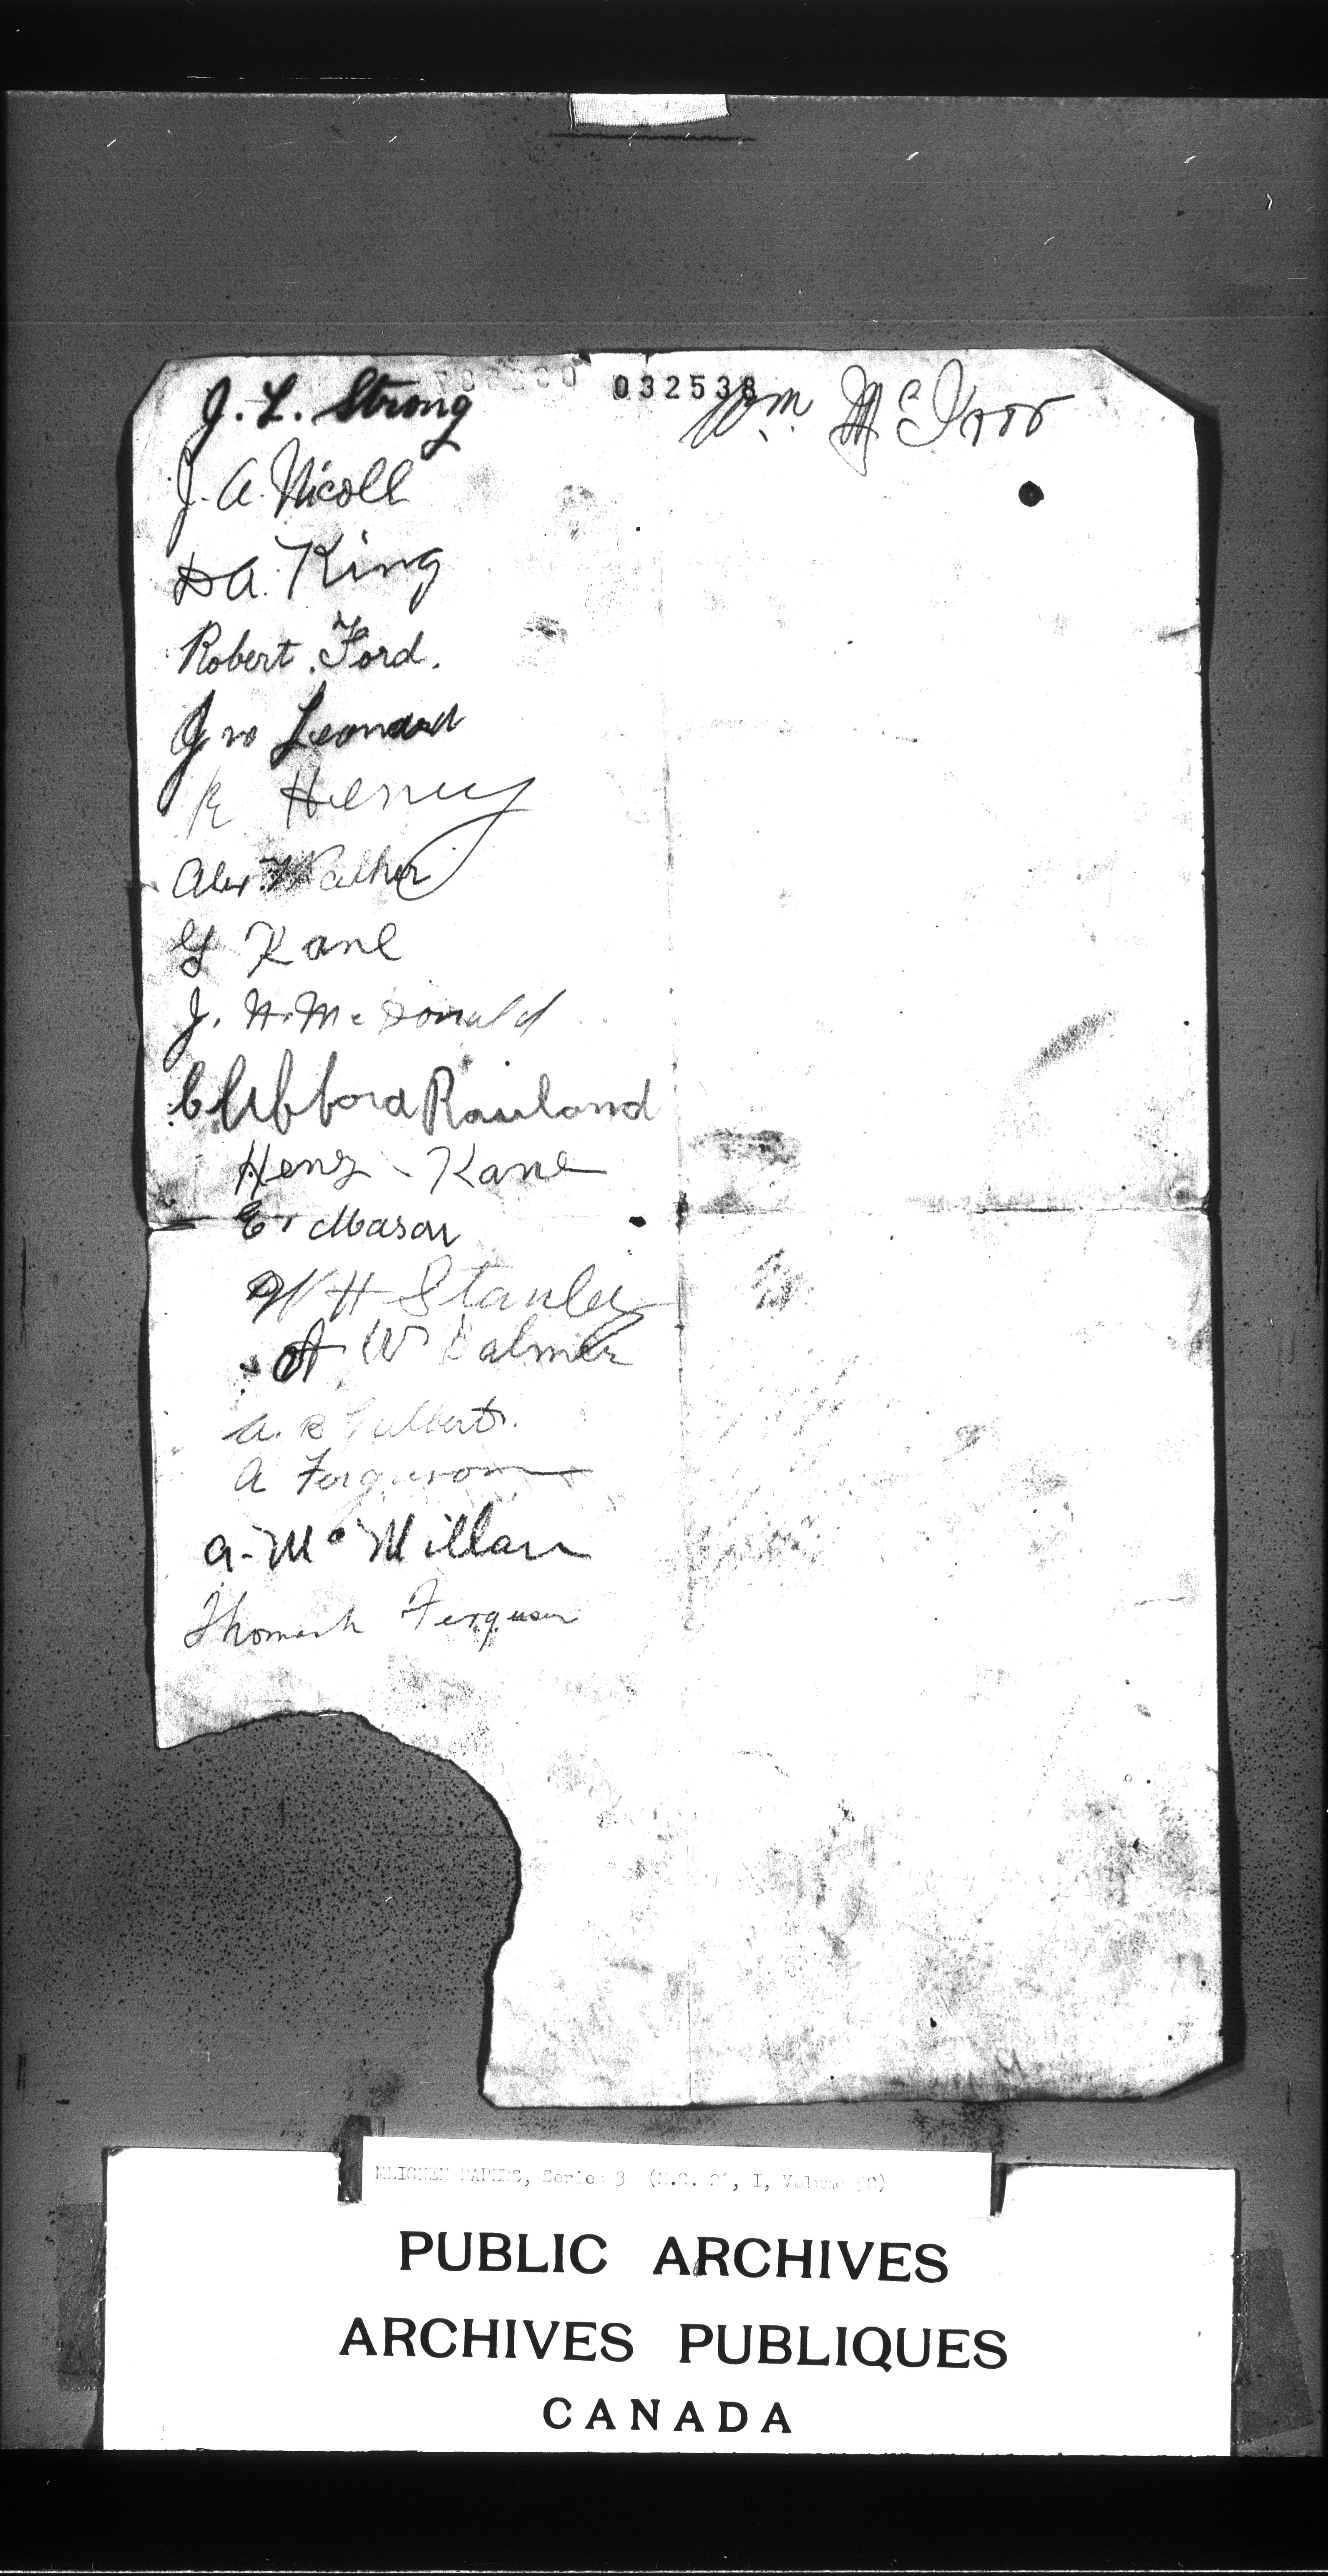 032538
J. L. Strong
Wm. Mc
J. A. Nicoll
D A. King
Robert. Ford.
Jno Leonard
R Henry
Alex Walker
G Kane
J. H. McDonald
Clifford Rouland
Henry Kane
E. Mason
W H Stanley
A W Balmer
A. B
A Ferguson
A. McMillan
Thomas Ferguson
MEIGHEN PAPERS, Series 3 (M.G. 26, I, Volume
PUBLIC ARCHIVES
ARCHIVES PUBLIQUES
CANADA